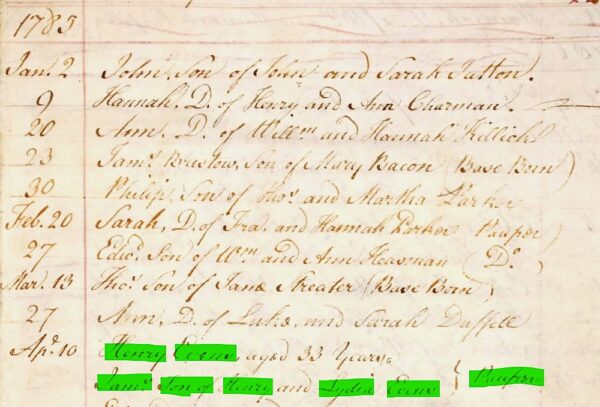 1785
Jan. 2 John, Son of John and Sarah Tutton.
9 Hannah, D. of Henry and Ann Charman.
20 Ann, D. of Willm and Hannah Killick
23 Jams Bristow, Son of Mary Bacon (Base Born)
30 Philip, Son of Thos and Martha Parker
Feb. 20 Sarah, D. of Fra. and Hannah Parker Pauper)
27 Edwd Son of Wm and Ann Heasman (Do)
Mar. 13 Thos Son of Jane Streater (Base Born)
27 Ann, D. of Luke, and Sarah
Apl 10 Henry Evens aged 33 Years
Jams Son of Henry and Lydia Evens } Pauper